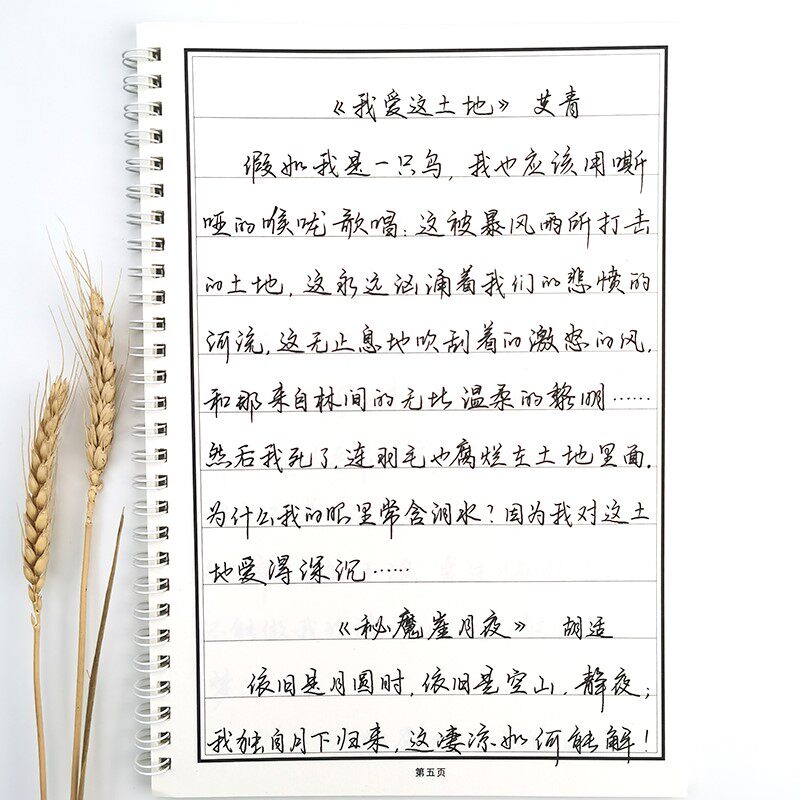 《我爱这土地》 艾青
假如我是一只鸟，我也应该用嘶
哑的喉咙歌唱：这被暴风雨所打击
的土地，这永远汹涌着我们的悲愤的
河流，这无止息地吹刮着的激怒的风，
和那来自林间的无比温柔的黎明……
然后我死了，连羽毛也腐烂在土地里面。
为什么我的眼里常含泪水？因为我对这土
地爱得深沉……
《秘魔崖月夜》 胡适
依旧是月圆时，依旧是空山，静夜；
我独自月下归来，这凄凉如何能解！
第五页